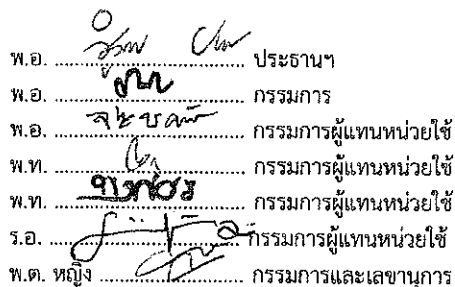 พ.อ. ........................ ประธานฯ
พ.อ. ........................ กรรมการ
พ.อ. ........................ กรรมการผู้แทนหน่วยใช้
พ.ท. ........................ กรรมการผู้แทนหน่วยใช้
พ.ท. ........................ กรรมการผู้แทนหน่วยใช้
ร.อ. ........................ กรรมการผู้แทนหน่วยใช้
พ.ต. หญิง .................... กรรมการและเลขานุการ